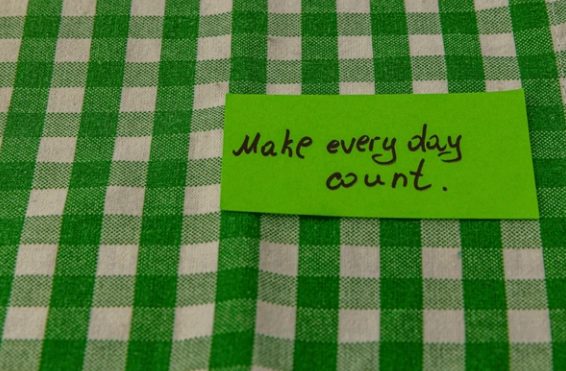 Make every day
count.